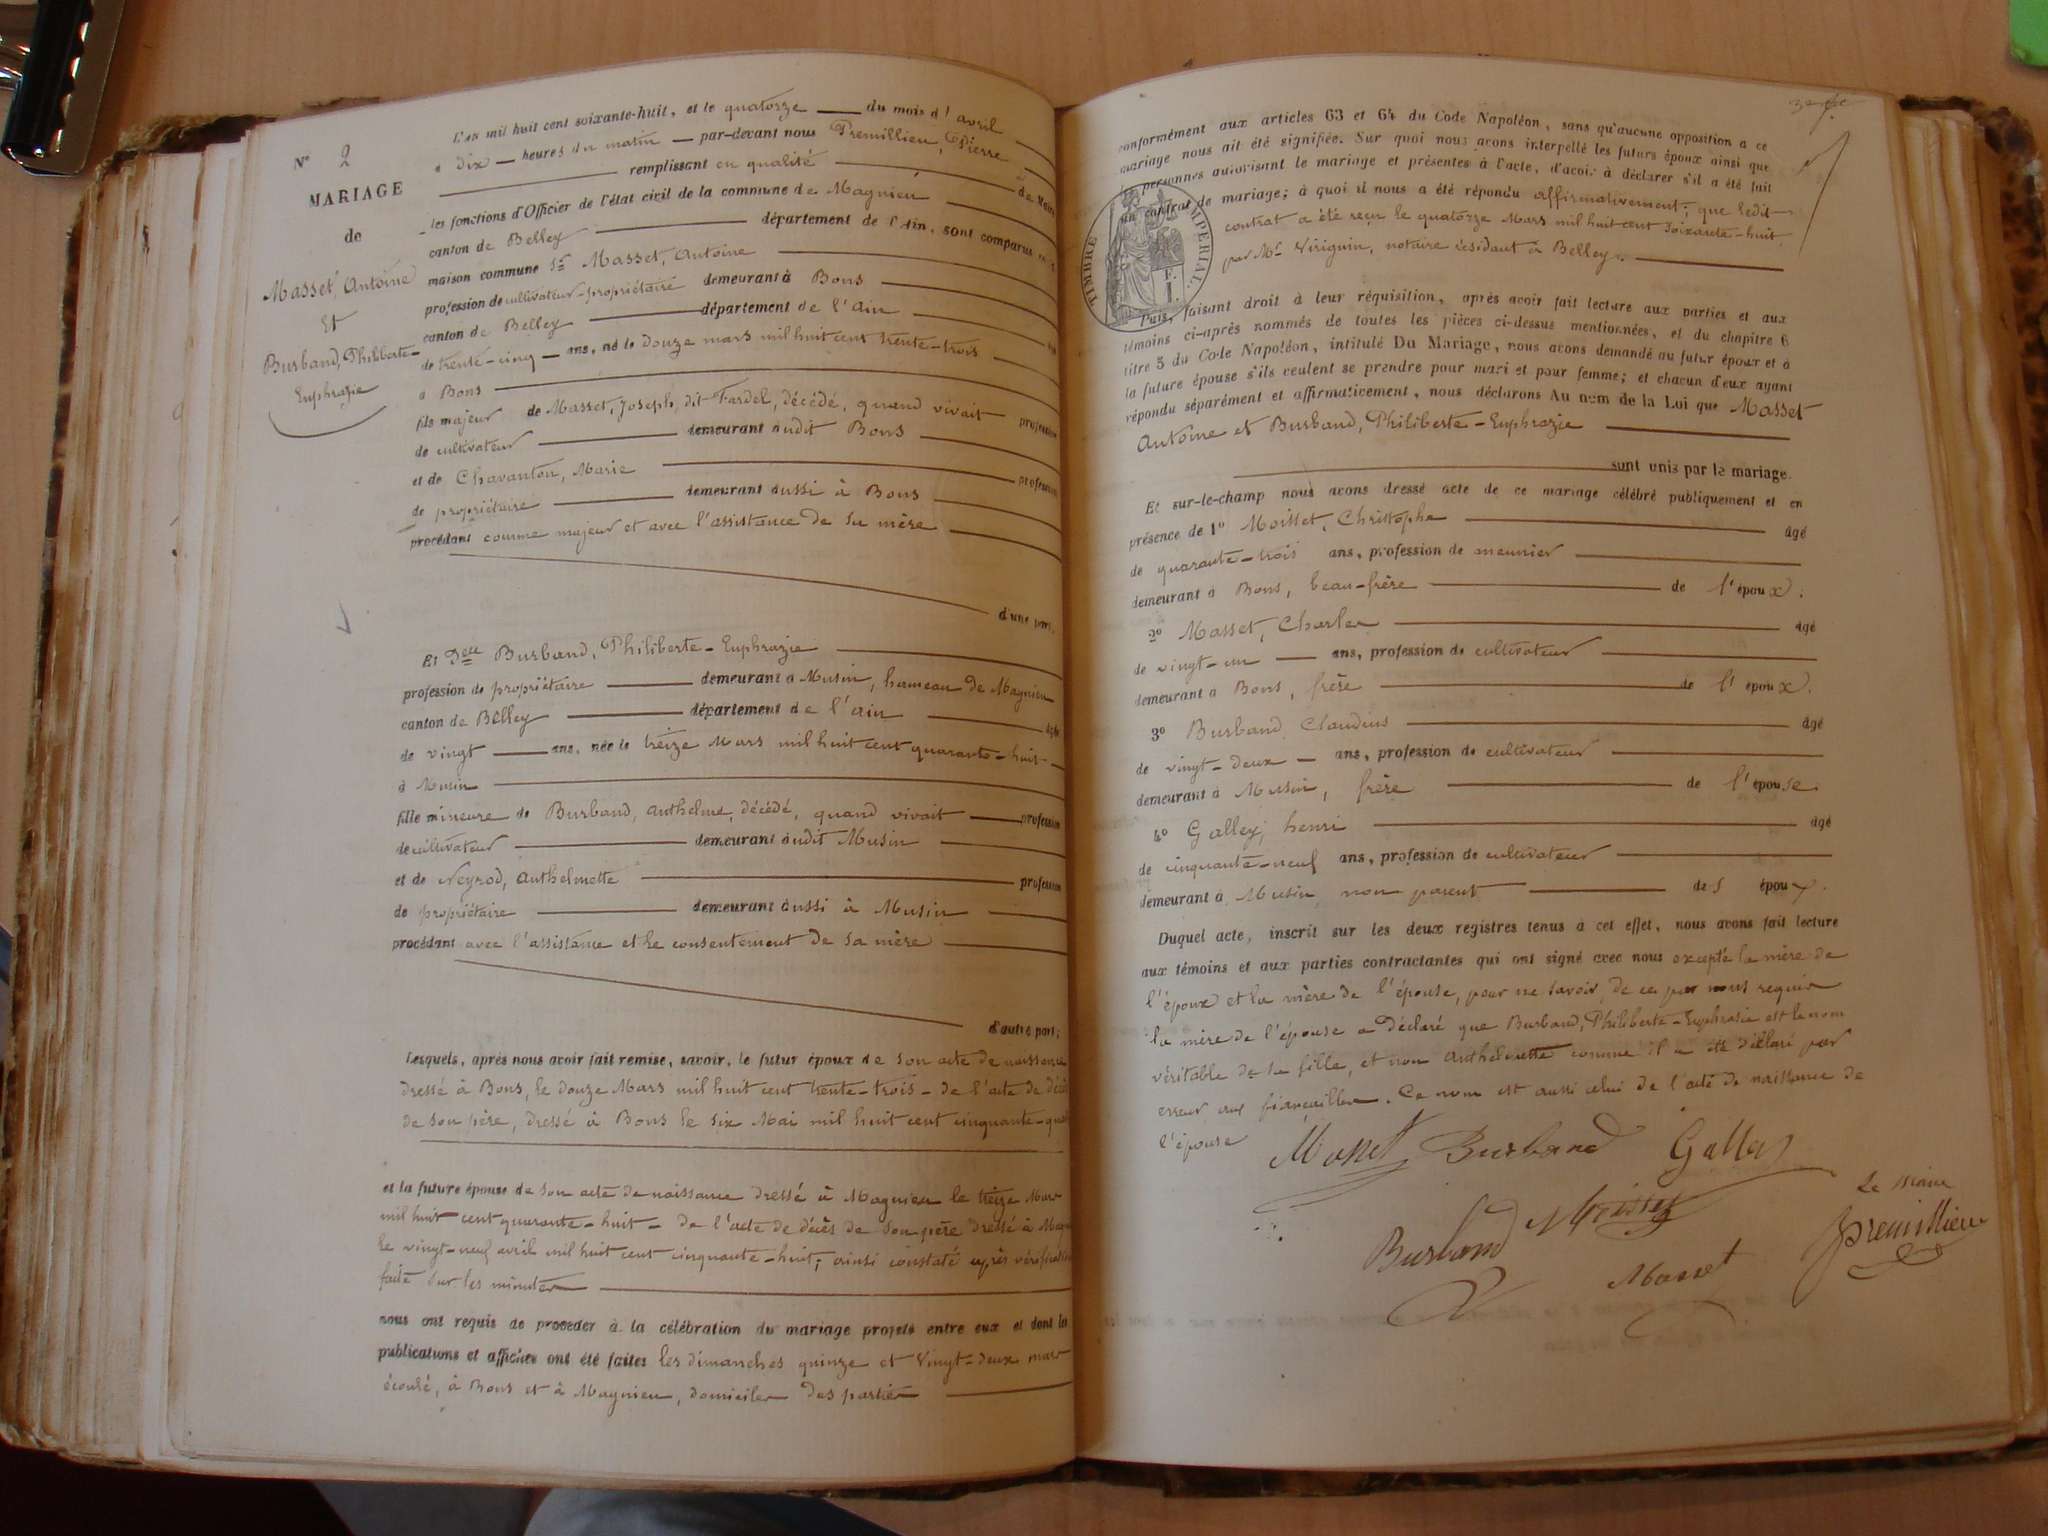 N° 2
MARIAGE
de
Masset, Antoine
Et
Burband, Philiberte-
Euphrazie
L'an mil huit cent soixante-huit, et le quatorze du mois d'avril
à dix heures du matin par-devant nous Premillieu, Pierre
remplissant en qualité de Maire
les fonctions d'Officier de l'état civil de la commune de Magnieu
canton de Belley département de l'Ain, sont comparus en la
maison commune Sr Masset, Antoine
profession de cultivateur-propriétaire demeurant à Bons
canton de Belley département de l'ain
de trente-cinq ans, né le douze mars mil huit cent trente-trois
à Bons
fils majeur de Masset, Joseph, dit Fardel, décédé, quand vivait profession
de cultivateur demeurant audit Bons
et de Chavanton, Marie profession
de propriétaire demeurant aussi à Bons
procédant comme majeur et avec l'assistance de sa mère
d'une part,
Et Delle Burband, Philiberte-Euphrazie
profession de propriétaire demeurant à Musin, hameau de Magnieu
canton de Belley département de l'ain âgée
de vingt ans, née le treize Mars mil huit cent quarante-huit
à Musin
fille mineure de Burband, Anthelme, décédé, quand vivait profession
de cultivateur demeurant audit Musin
et de Neyrod, Anthelmette profession
de propriétaire demeurant aussi à Musin
procédant avec l'assistance et le consentement de sa mère
d'autre part;
Lesquels, après nous avoir fait remise, savoir, le futur époux de son acte de naissance
dressé à Bons, le douze Mars mil huit cent trente-trois - de l'acte de décès
de son père, dressé à Bons le six Mai mil huit cent cinquante-qua
et la future épouse de son acte de naissance dressé à Magnieu le treize Mars
mil huit cent quarante-huit - de l'acte de décès de son père dressé à Mag
le vingt-neuf avril mil huit cent cinquante-huit; ainsi constaté après vérification
faite sur les minutes
nous ont requis de procéder à la célébration du mariage projeté entre eux et dont les
publications et affiches ont été faites les dimanches quinze et vingt-deux mars
écoulé, à Bons et à Magnieu, domiciles des parties
conformément aux articles 63 et 64 du Code Napoléon, sans qu'aucune opposition a ce
mariage nous ait été signifiée. Sur quoi nous avons interpellé les futurs époux ainsi que
les personnes autorisant le mariage et présentes à l'acte, d'avoir à déclarer s'il a été fait
un contrat de mariage; à quoi il nous a été répondu affirmativement; que ledit
contrat a été reçu le quatorze Mars mil huit cent soixante-huit
par Me Viriguin, notaire résidant à Belley.
TIMBRE IMPERIAL.
F.
1.
Puis, faisant droit à leur réquisition, après avoir fait lecture aux parties et aux
témoins ci-après nommés de toutes les pièces ci-dessus mentionnées, et du chapitre 6
titre 5 du Code Napoléon, intitulé Du Mariage, nous avons demandé au futur époux et à
la future épouse s'ils veulent se prendre pour mari et pour femme; et chacun d'eux ayant
répondu séparément et affirmativement, nous déclarons Au nom de la Loi que Masset
Antoine et Burband, Philiberte-Euphrazie
sont unis par le mariage.
Et sur-le-champ nous avons dressé acte de ce mariage célébré publiquement et en
présence de 1° Moisset, Christophe âgé
de quarante-trois ans, profession de meunier
demeurant à Bons, beau-frère de l'époux.
2° Masset, Charles âgé
de vingt-un ans, profession de cultivateur
demeurant à Bons, frère de l'époux.
3° Burband, Claudius âgé
de vingt-deux ans, profession de cultivateur
demeurant à Musin, frère de l'épouse.
4° Galley, henri âgé
de cinquante-neuf ans, profession de cultivateur
demeurant à Musin, non parent des époux.
Duquel acte, inscrit sur les deux registres tenus à cet effet, nous avons fait lecture
aux témoins et aux parties contractantes qui ont signé avec nous excepté la mère de
l'époux et la mère de l'épouse, pour ne savoir, de ce par nous requis
la mère de l'épouse a déclaré que Burband, Philiberte-Euphrasie est le nom
véritable de sa fille, et non Anthelmette comme il a été déclaré par
erreur aux fiançailles. Ce nom est aussi celui de l'acte de naissance de
l'épouse
Masset Burband Galley
Burband Moisset Le maire
Masset Premillieu